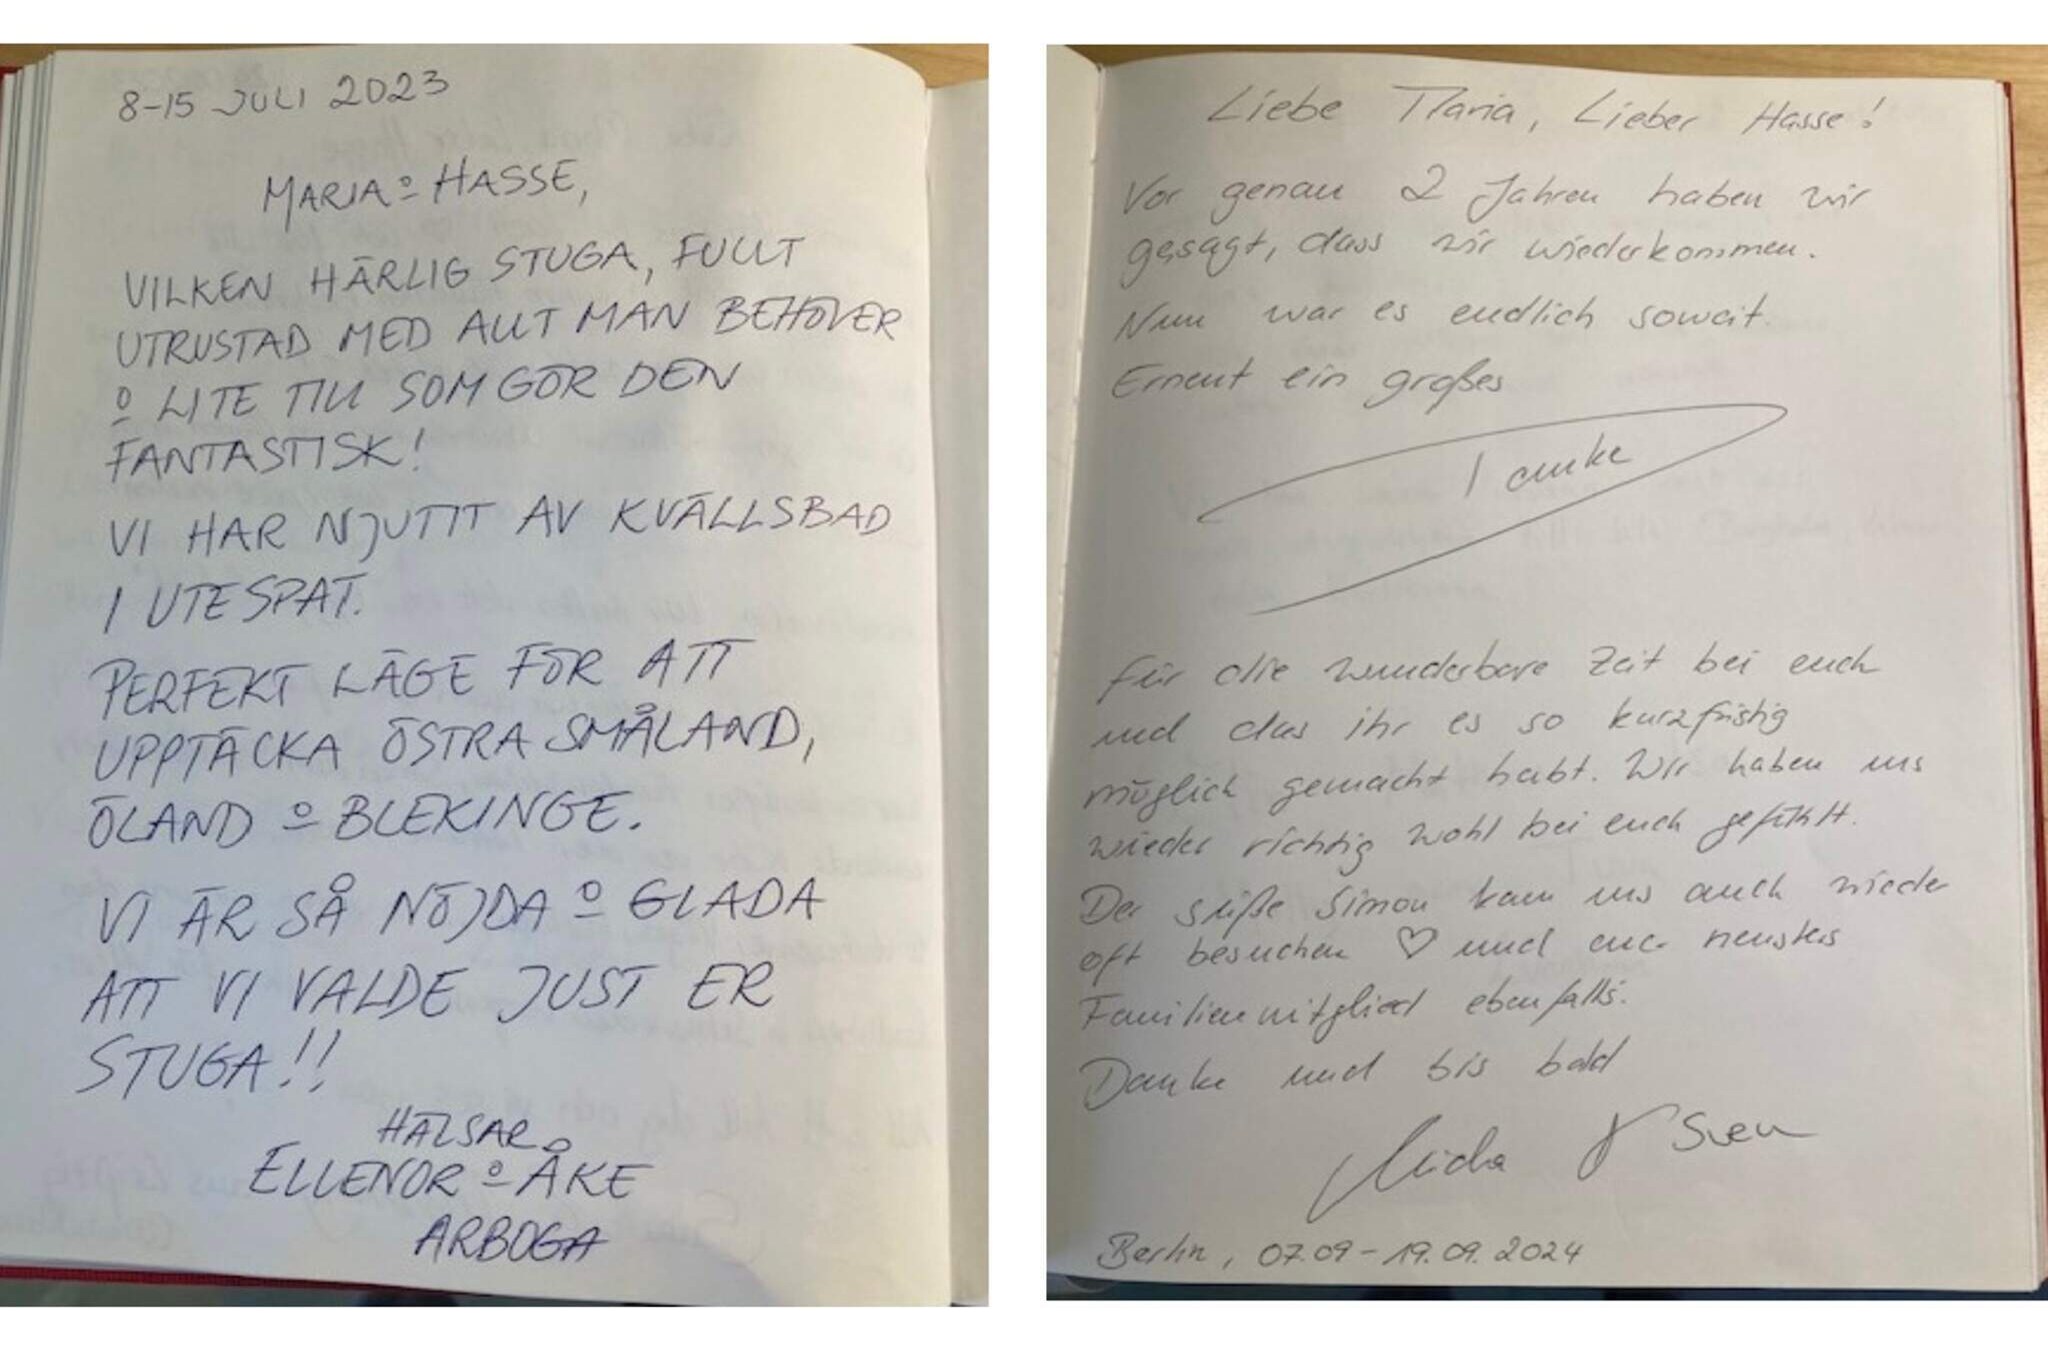 8-15 JULI 2023
MARIA o HASSE,
VILKEN HÄRLIG STUGA, FULLT
UTRUSTAD MED ALLT MAN BEHÖVER
o LITE TILL SOM GÖR DEN
FANTASTISK!
VI HAR NJUTIT AV KVÄLLSBAD
I UTESPAT.
PERFEKT LÄGE FÖR ATT
UPPTÄCKA ÖSTRA SMÅLAND,
ÖLAND o BLEKINGE.
VI ÄR SÅ NÖJDA o GLADA
ATT VI VALDE JUST ER
STUGA!!
HÄLSAR
ELLENOR o ÅKE
ARBOGA
Liebe Maria, Lieber Hasse!
Vor genau 2 Jahren haben wir
gesagt, dass wir wiederkommen.
Nun war es endlich soweit.
Erneut ein großes
Danke
für die wunderbare Zeit bei euch
und das ihr es so kurzfristig
möglich gemacht habt. Wir haben uns
wieder richtig wohl bei euch gefühlt.
Der süße Simon kam uns auch wieder
oft besuchen ♡ und euer neustes
Familienmitglied ebenfalls.
Danke und bis bald
Sven
Berlin, 07.09-19.09.2024